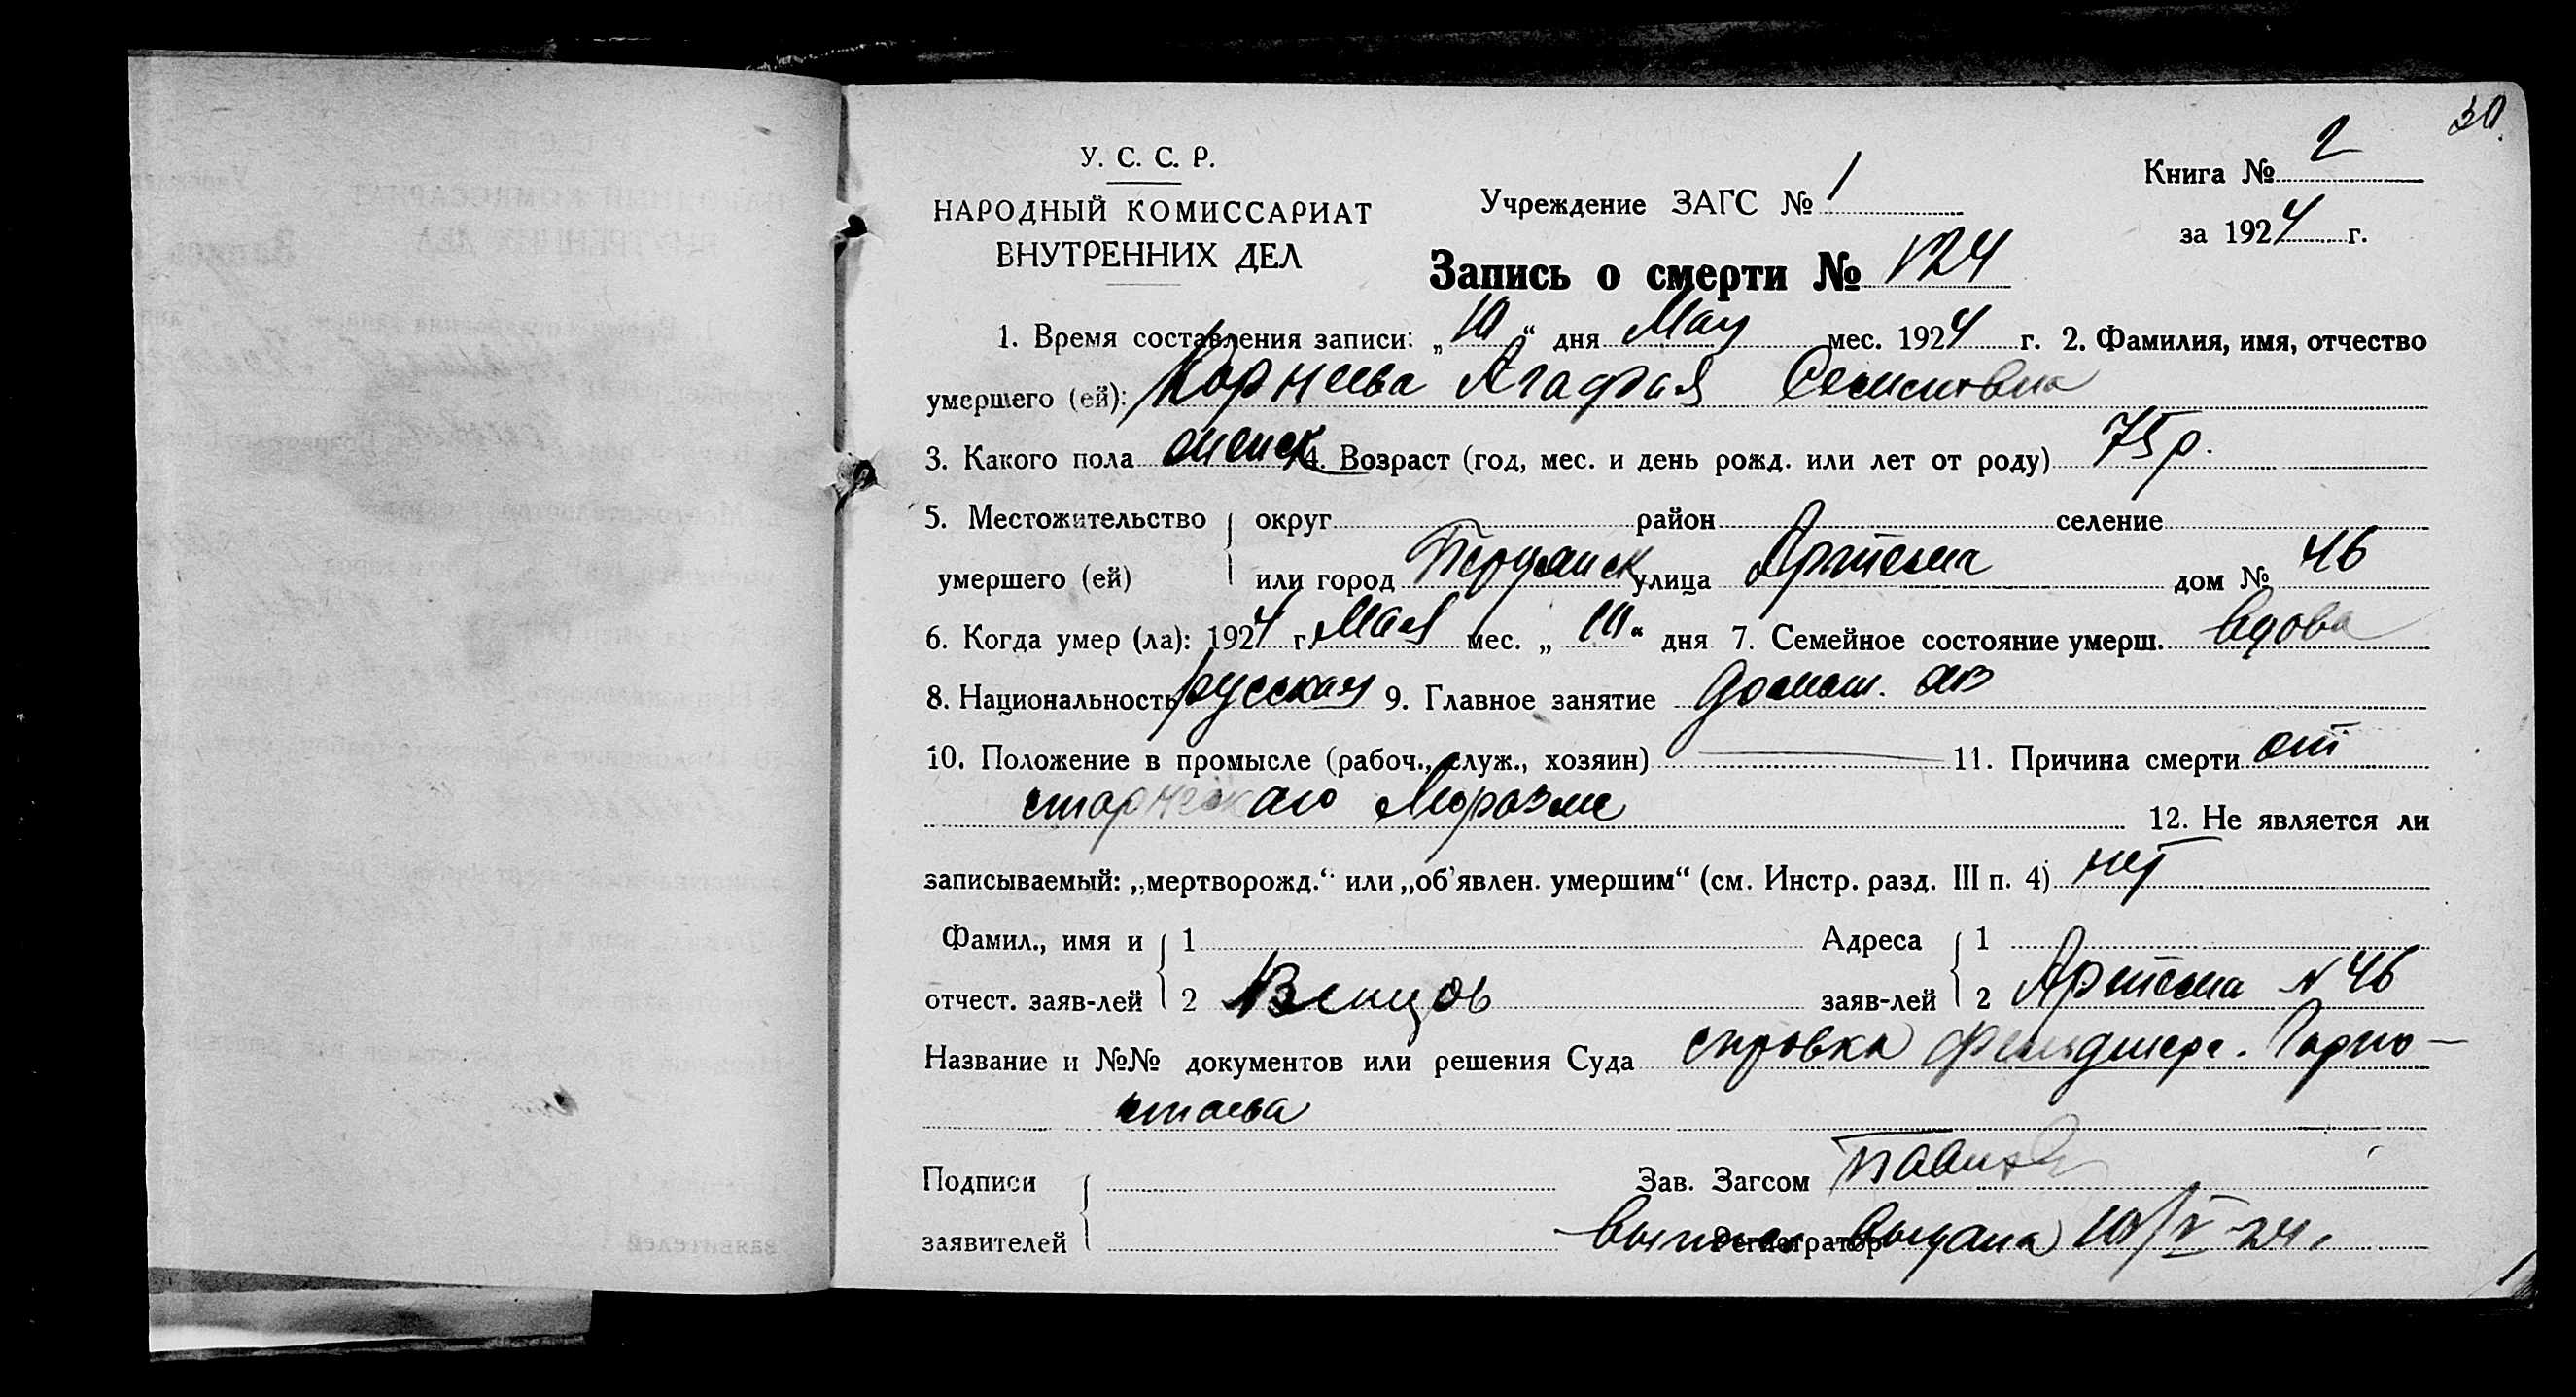 30.
У. С. С. Р.
НАРОДНЫЙ КОМИССАРИАТ
ВНУТРЕННИХ ДЕЛ
Учреждение ЗАГС № 1
Книга № 2
за 1924 г.
Запись о смерти № 124
1. Время составления записи: „10“ дня Мая мес. 1924 г. 2. Фамилия, имя, отчество
умершего (ей): Корнеева Агафия Семеновна
3. Какого пола женск 4. Возраст (год, мес. и день рожд. или лет от роду) 75 р.
5. Местожительство округ район селение
умершего (ей) или город Бердянск улица Артема дом № 46
6. Когда умер (ла): 1924 г. Мая мес. „10“ дня 7. Семейное состояние умерш. вдова
8. Национальность русская 9. Главное занятие домаш. хоз
10. Положение в промысле (рабоч., служ., хозяин) — 11. Причина смерти от
старческаго Моразма
12. Не является ли
записываемый: „мертворожд.“ или „об'явлен. умершим“ (см. Инстр. разд. III п. 4) нет
Фамил., имя и 1 Адреса 1
отчест. заяв-лей 2 Венцов заяв-лей 2 Артема № 46
Название и №№ документов или решения Суда справка фельдшера. Горно-
стаева
Подписи Зав. Загсом
заявителей Регистратор выпись выдана 10/V 24.